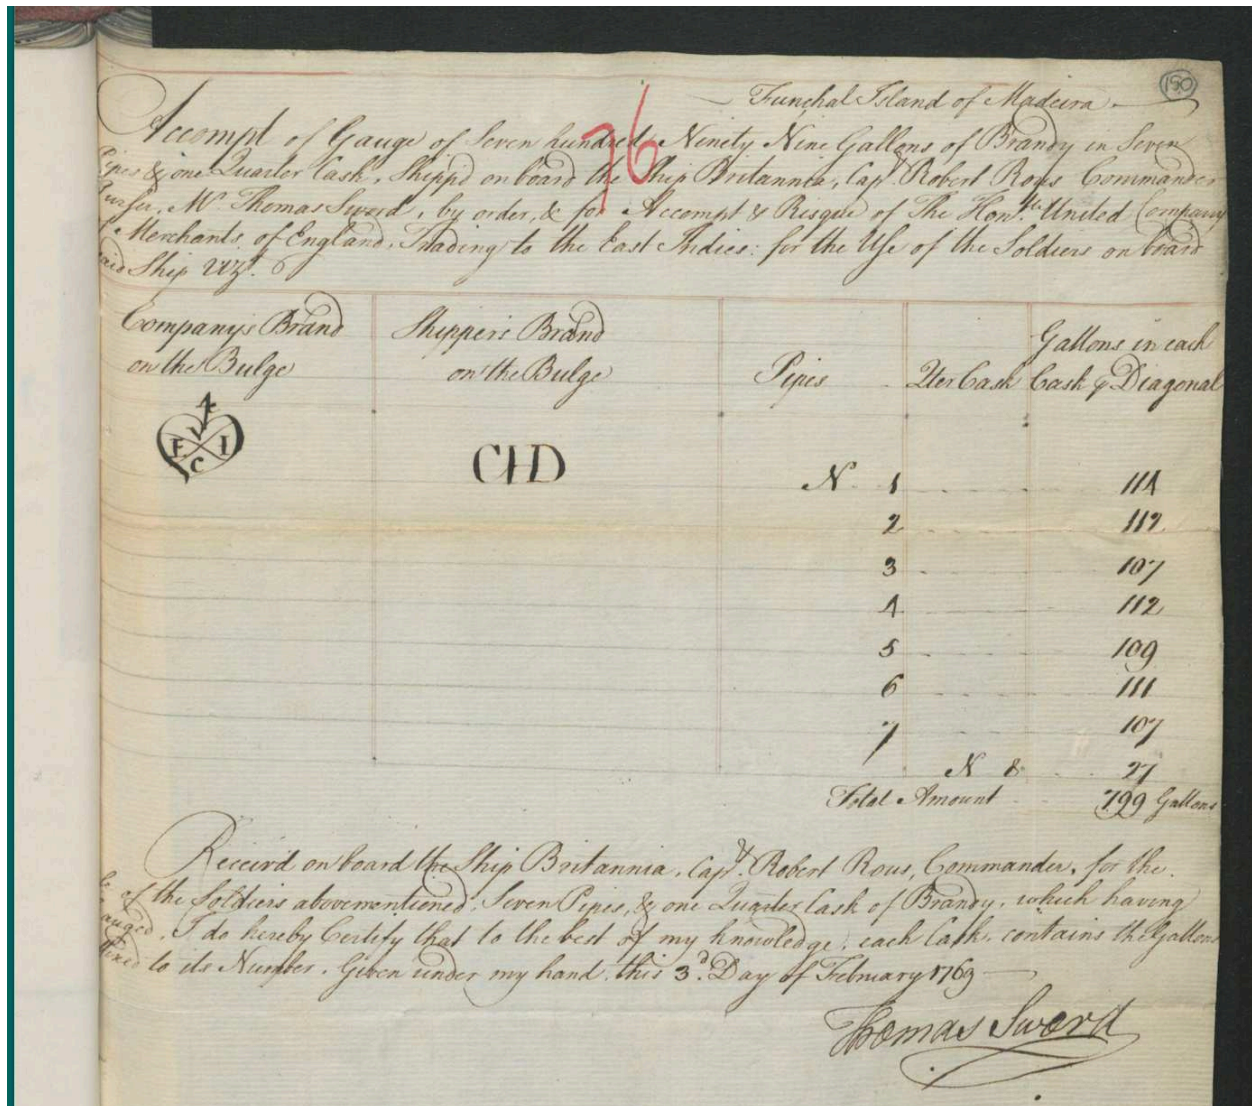 150
Funchal Island of Madeira
76
Accompt of Gauge of Seven hundred Ninety Nine Gallons of Brandy in Seven
Pipes & one Quarter Cask, Shipp'd on board the Ship Britannia, Capt. Robert Rous Commander
Purser, Mr Thomas Sword, by order, & for Accompt & Risque of The Honble. United Company
of Merchants of England, Trading to the East Indies: for the Use of the Soldiers on board
said Ship Vizt.
Company's Brand on the Bulge
Shippers Brand on the Bulge
Pipes
Qter Cask
Gallons in each Cask p Diagonal
4 V E I C
CHD
N 1 114
2 112
3 107
4 112
5 109
6 111
7 107
N 8 27
Total Amount 799 Gallons
Receiv'd on board the Ship Britannia, Capt. Robert Rous, Commander, for the
of the Soldiers abovementioned, Seven Pipes, & one Quarter Cask of Brandy, which having
gauged, I do hereby Certify that to the best of my knowledge, each Cask, contains the Gallons
affixed to its Number. Given under my hand this 3d. Day of February 1769
Thomas Sword